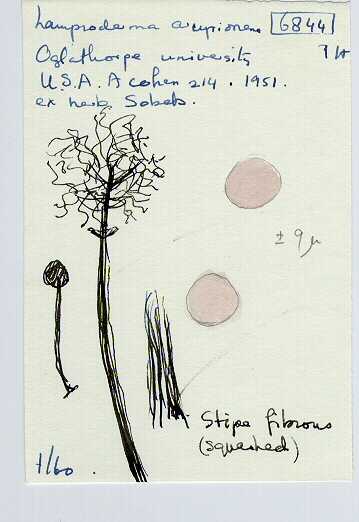 Lamproderma arcyrionema 6844
Oglathorpe university
U.S.A. A cohen 214 . 1951.
ex herb. Sobels.
± 9 µ
Stipe fibrous
(squashed)
1/60 .